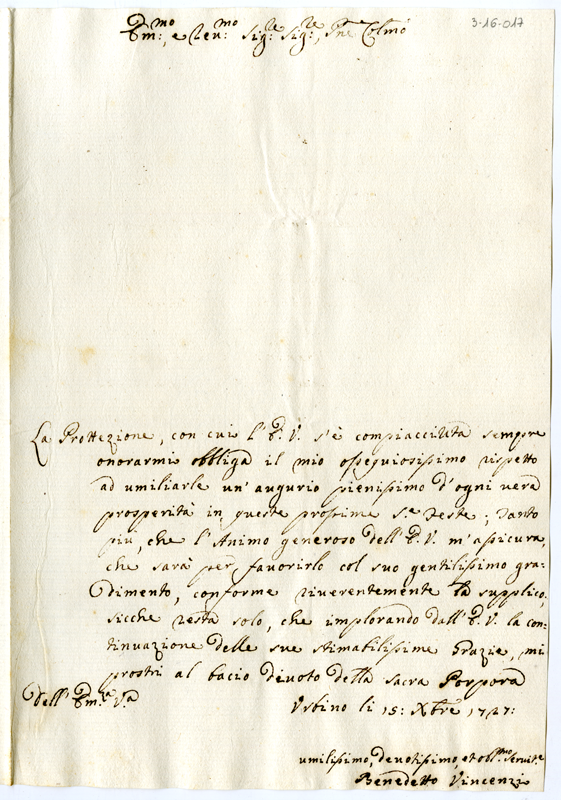 3-16-017
Em:mo, e Rev:mo Sig:re Sig:re, Pne Colmo
La Prottezione, con cui l'E. V. s'è compiacciuta sempre
onorarmi obbliga il mio ossequiosissimo rispetto
ad umiliarle un'augurio pienissimo d'ogni vera
prosperità in queste prossime S.e Feste; Tanto
più, che l'Animo generoso dell'E. V. m'assicura,
che sarà per favorirlo col suo gentilissimo gra:
dimento, conforme riverentemente la supplico,
sicche resta solo, che implorando dall'E. V. la con:
tinuazione delle sue stimatissime Grazie, mi
prostri al bacio divoto della sacra Porpora
Dell'Em:za V.a
Urbino li 15: Xbre 1727:
umilissimo, devotissimo, et obb:mo Servit.e
Benedetto Vincenzi